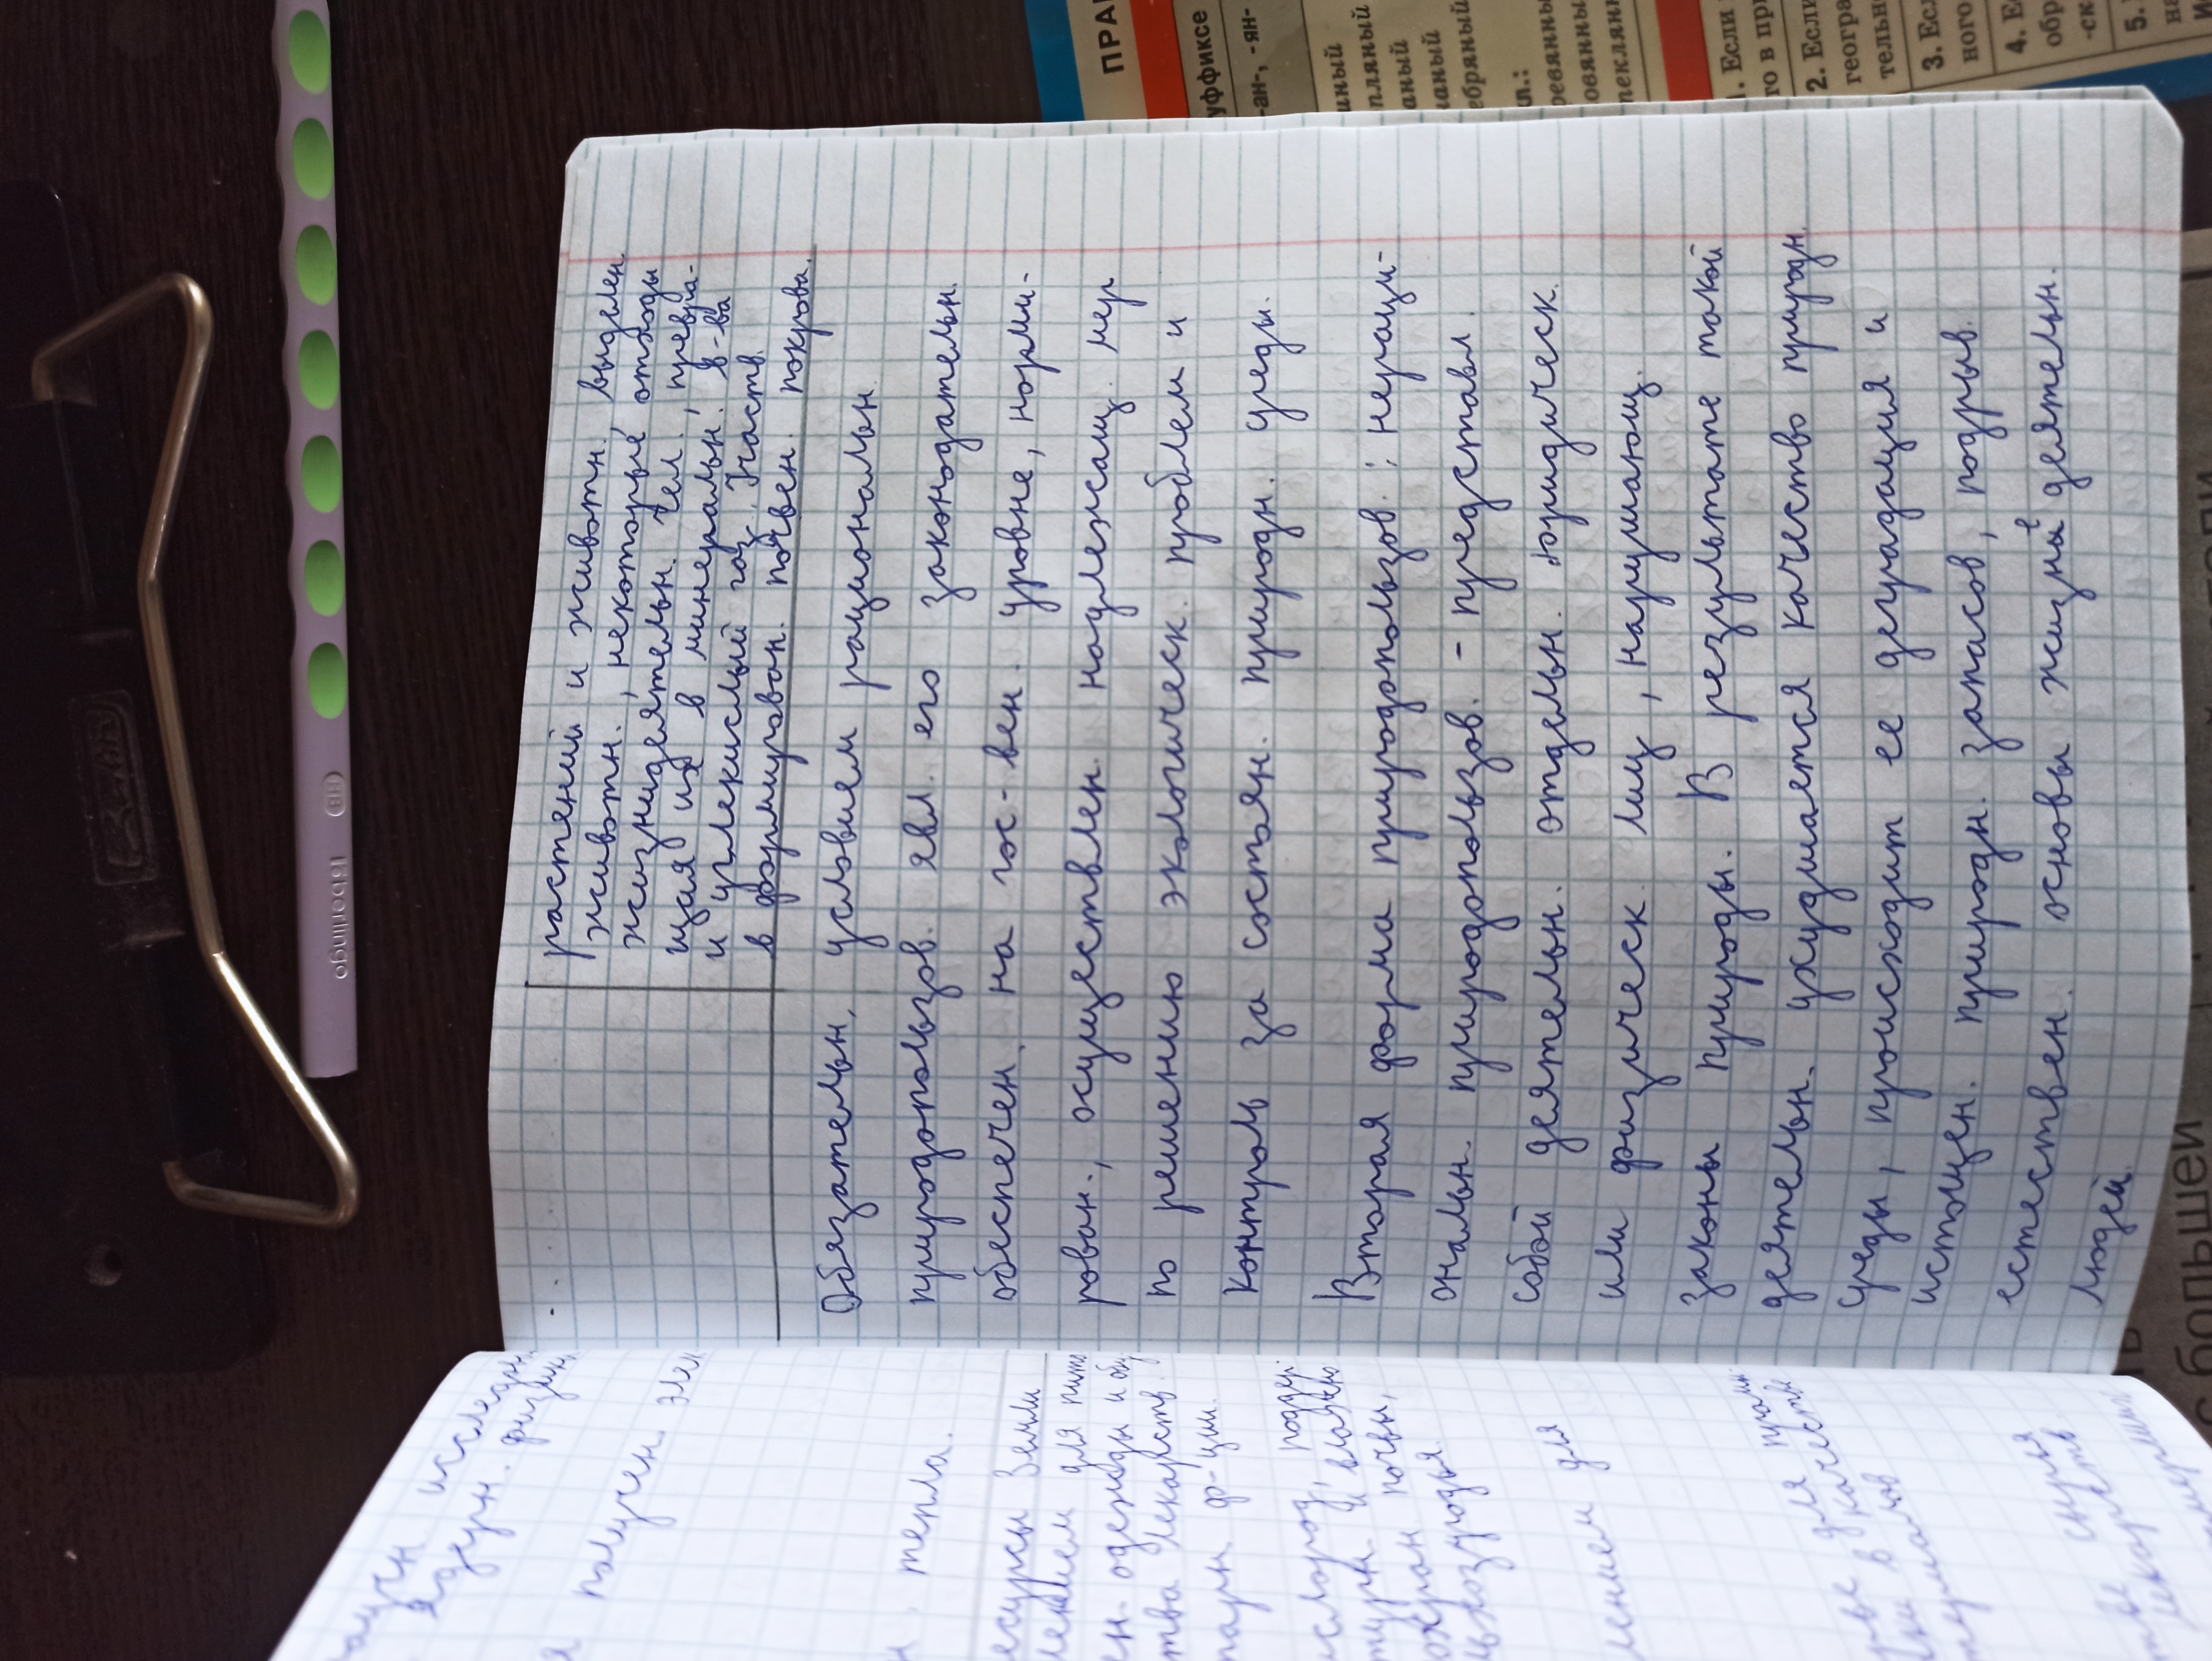 растений и животн. выделен.
животн., некоторые отходы
жизнидеятельн. чел., превра-
щая их в минеральн. в-ва
и углекислый газ. Участв.
в формирован. почвен. покрова.
Обязательн. условием рациональн.
природопользов. явл. его законодательн.
обеспечен. на гос-вен. уровне, норми-
рован., осуществлен. надлежащ. мер
по решению экологическ. проблем и
контроль за состоян. природн. среды.
Вторая форма природопользов.: нераци-
ональн. природопользов. - представл.
собой деятельн. отдельн. юридическ.
или физическ. лиц, нарушающ.
законы природы. В результате такой
деятельн. ухудшается качество природн.
среды, происходит ее деградация и
истощен. природн. запасов, подрыв.
естествен. основы жизнедеятельн.
людей.
исследн.
ядерн. физики
получен. эл
тепла.
есурсы Земли
для пит
ен. одежды и об
тва лекарств.
ф-ции.
ислород, поддер
и влажно
охран почвы,
для
в качеств
сырья
Berlingo
HB
ПРАВ
уффиксе
-ан-, -ян-
1. Если
то в пр
2. Если
геогра
тельно
3. Есл
ного
4. Е
обр
-ск
5.
на
с большей